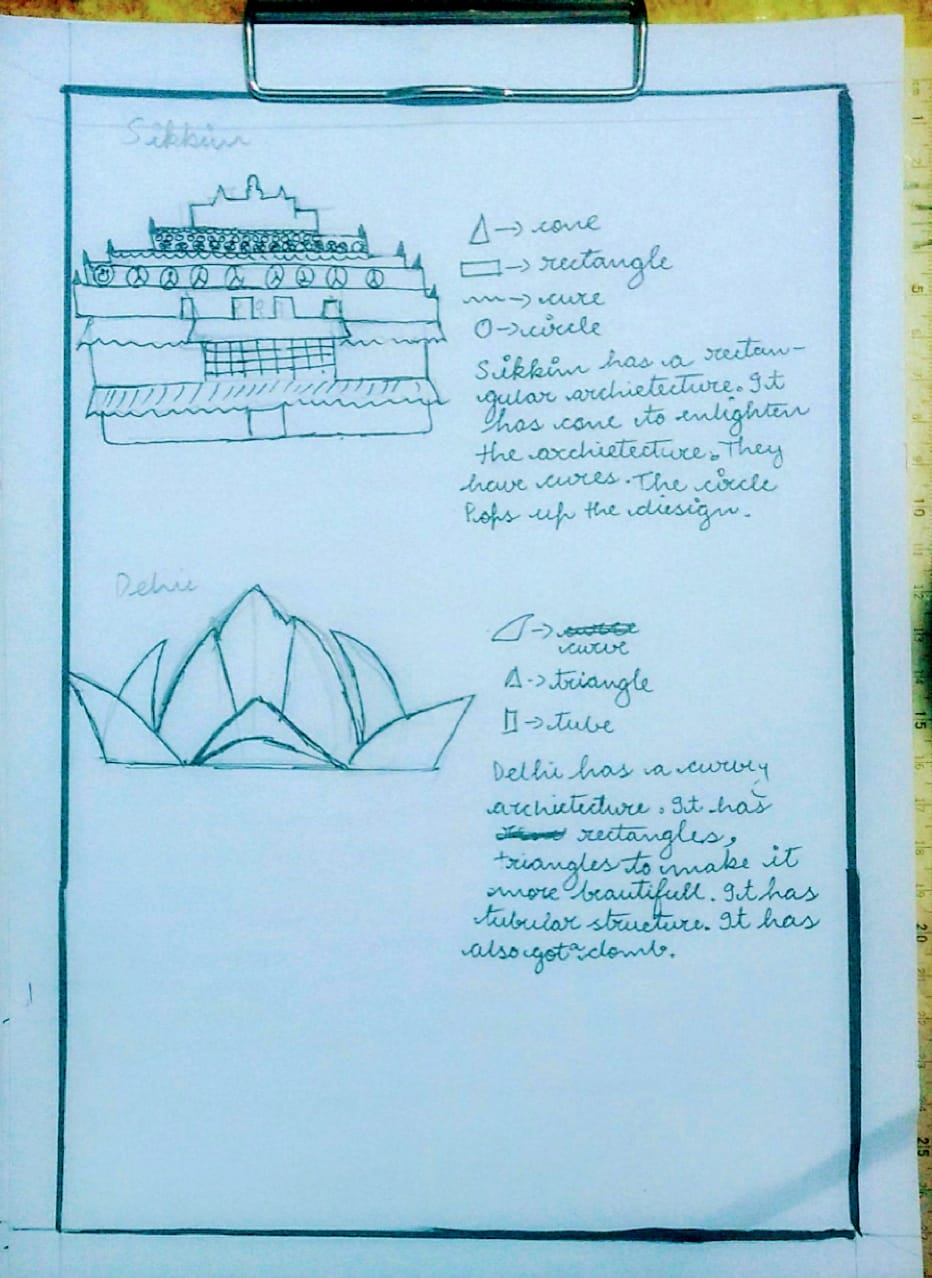 Sikkim
△ → cone
▭ → rectangle
~~ → cure
O → circle
Sikkim has a rectan-
gular archietecture. It
has cone to enlighten
the archietecture. They
have cures. The circle
Pops up the diesign.
Delhi
→
curve
△ → triangle
▯ → tube
Delhi has a curvy
archietecture. It has
rectangles,
triangles to make it
more beautifull. It has
tubular structure. It has
also got a domb.
1
2
5
10
12
13
14
15
16
17
18
19
20
25